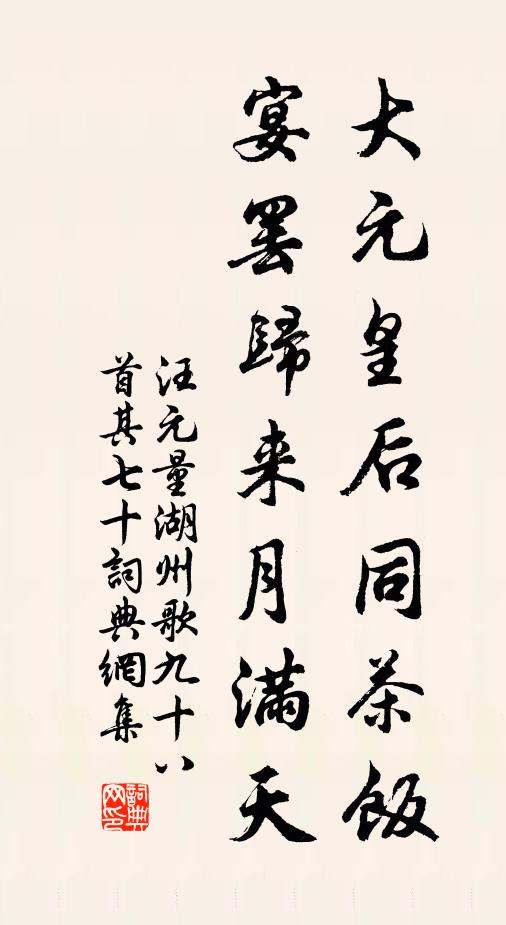 大元皇后同茶飯
宴罷歸来月满天
汪元量湖州歌九十八
首其七十詞典網集
詞典
网印